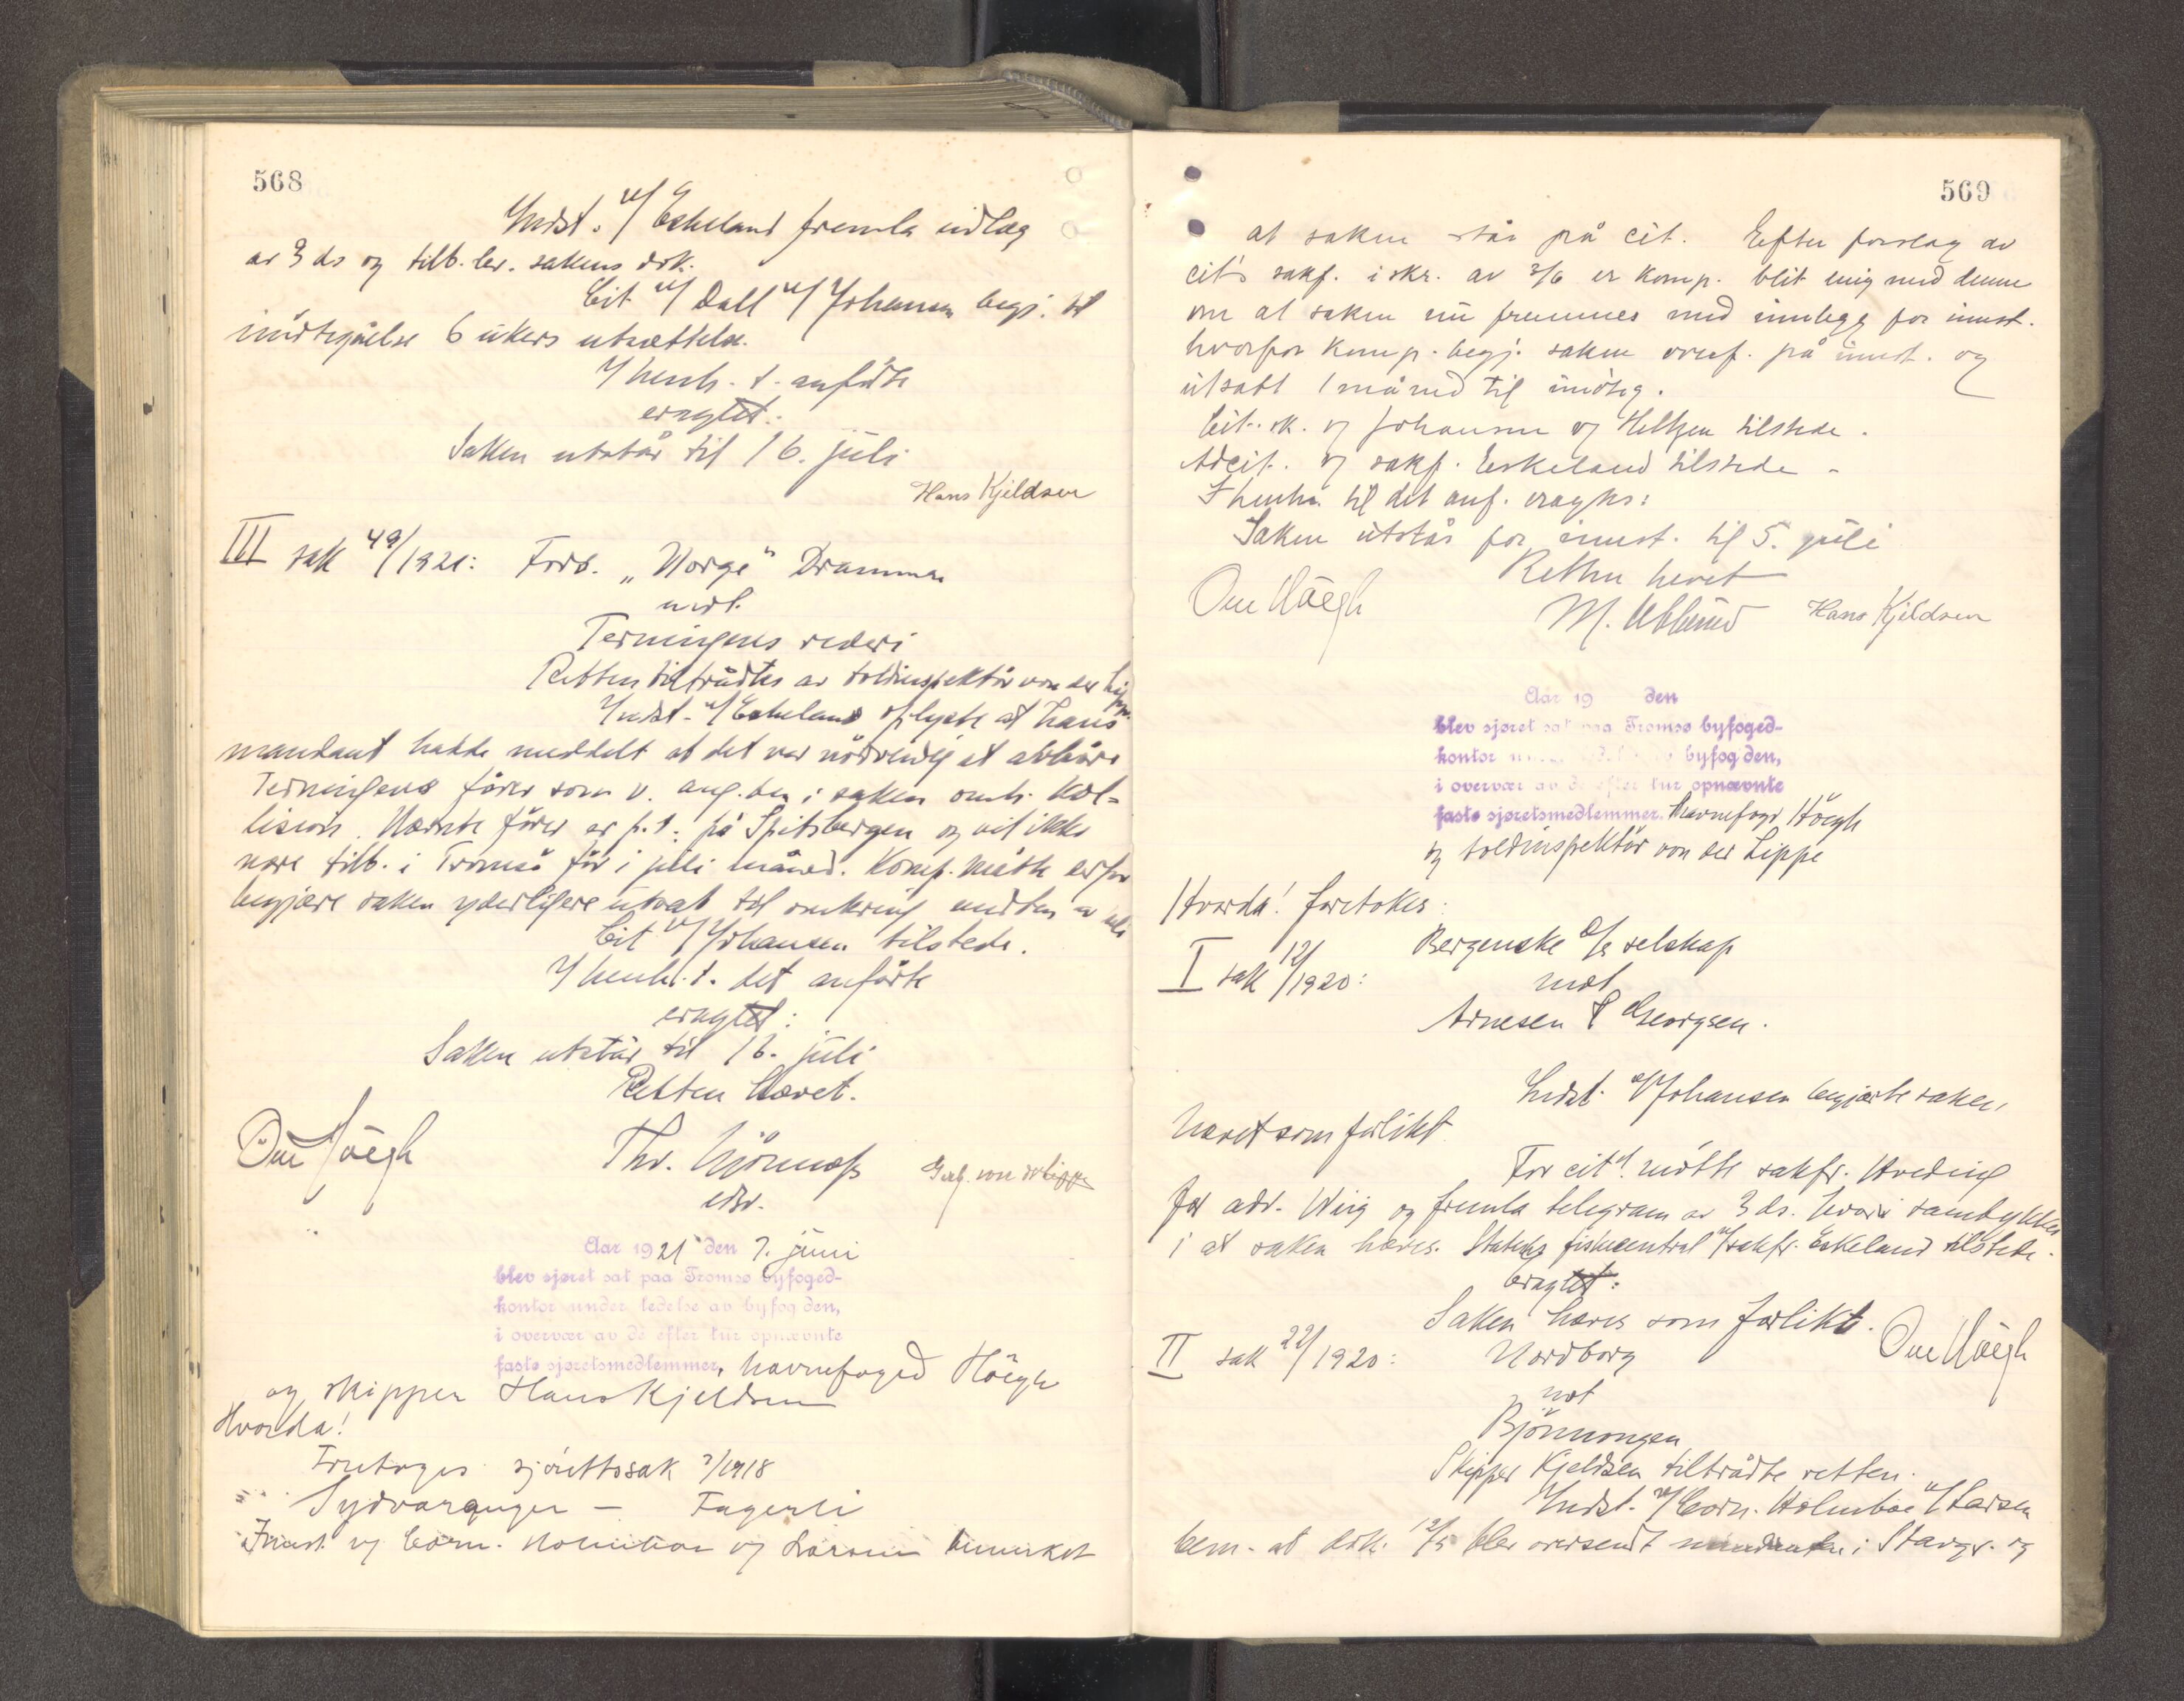 568
Indst. v/ Eskeland fremla indlæg
av 3 ds og tilb. lev. sakens dok.
Cit v/ Dall v/ Johansen begj. til
imötegåelse 6 ukers utsættelse.
I henh. t. anförte
eragtet:
Saken utstår til 16. juli
Hans Kjeldsen
III sak 49/1921: Fors. „Norge" Drammen
mot
Terningens rederi
Retten tiltrådtes av toldinspektör von der Lippe.
Indst. v/ Eskeland oplyste at hans
mandant hadde meddelt at det var nödvendig at avhöre
Terningens förer som v. ang. den i saken omh. kol-
lision. Nævnte förer er p.t. på Spitsbergen og vil ikke
være tilb. i Tromsö för i juli måned. Komp. måtte derfor
begjære saken yderligere utsat til omkring midten av juli
Cit v/ Johansen tilstede.
I henh. t. det anförte
eragtet:
Saken utstår til 16. juli
Retten hævet.
Ove Höegh
Thv. Björnness
edsv.
Gerh. von der Lippe
Aar 1921 den 7. juni
blev sjøret sat paa Tromsø byfoged-
kontor under ledelse av byfogden,
i overvær av de efter tur opnævnte
faste sjøretsmedlemmer, havnefoged Höegh
og skipper Hans Kjeldsen
Hvorda!
Foretoges sjörettssak 7/1918
Sydvaranger — Fagerli
Innst. v/ Corn. Holmboe v/ Larsen bemerket
569
at saken står på cit. Efter forslag av
cit's sakf. i skr. av 3/6 er komp. blit enig med denne
om at saken nu fremmes med innlegg for innst.
hvorfor komp. begj. saken overf. på innst. og
utsatt 1 måned til imöteg.
Cit. sk. v/ Johansen v/ Heltzen tilstede.
Adcit. v/ sakf. Eskeland tilstede.
I henhn til det anf. eragtes:
Saken utstår for innst. til 5. juli
Retten hevet
Ove Höegh
Hans Kjeldsen
Aar 19 den
blev sjøret sat paa Tromsø byfoged-
kontor under ledelse av byfogden,
i overvær av de efter tur opnævnte
faste sjøretsmedlemmer. Havnefogd Höegh
og toldinspektör von der Lippe
Hvorda! foretokes:
I sak 12/1920: Bergenske D/s selskap
mot
Arnesen & Georgsen.
Indst. v/ Johansen begjærte saken
hævet som forlikt
For cit. mötte sakfr. Hveding
for adv. Wiig og fremla telegram av 3 ds. hvori samtykkes
i at saken hæves. Statens fiskecentral v/ sakfr. Eskeland tilstede.
eragtet:
Saken hæves som forlikt.
Ove Höegh
II sak 22/1920: Nordborg
mot
Björnungen
Skipper Kjeldsen tiltrådte retten.
Indst. v/ Corn. Holmboe v/ Larsen
bem. at dok. 12/5 blev oversendt mandanten i Stavgr. og